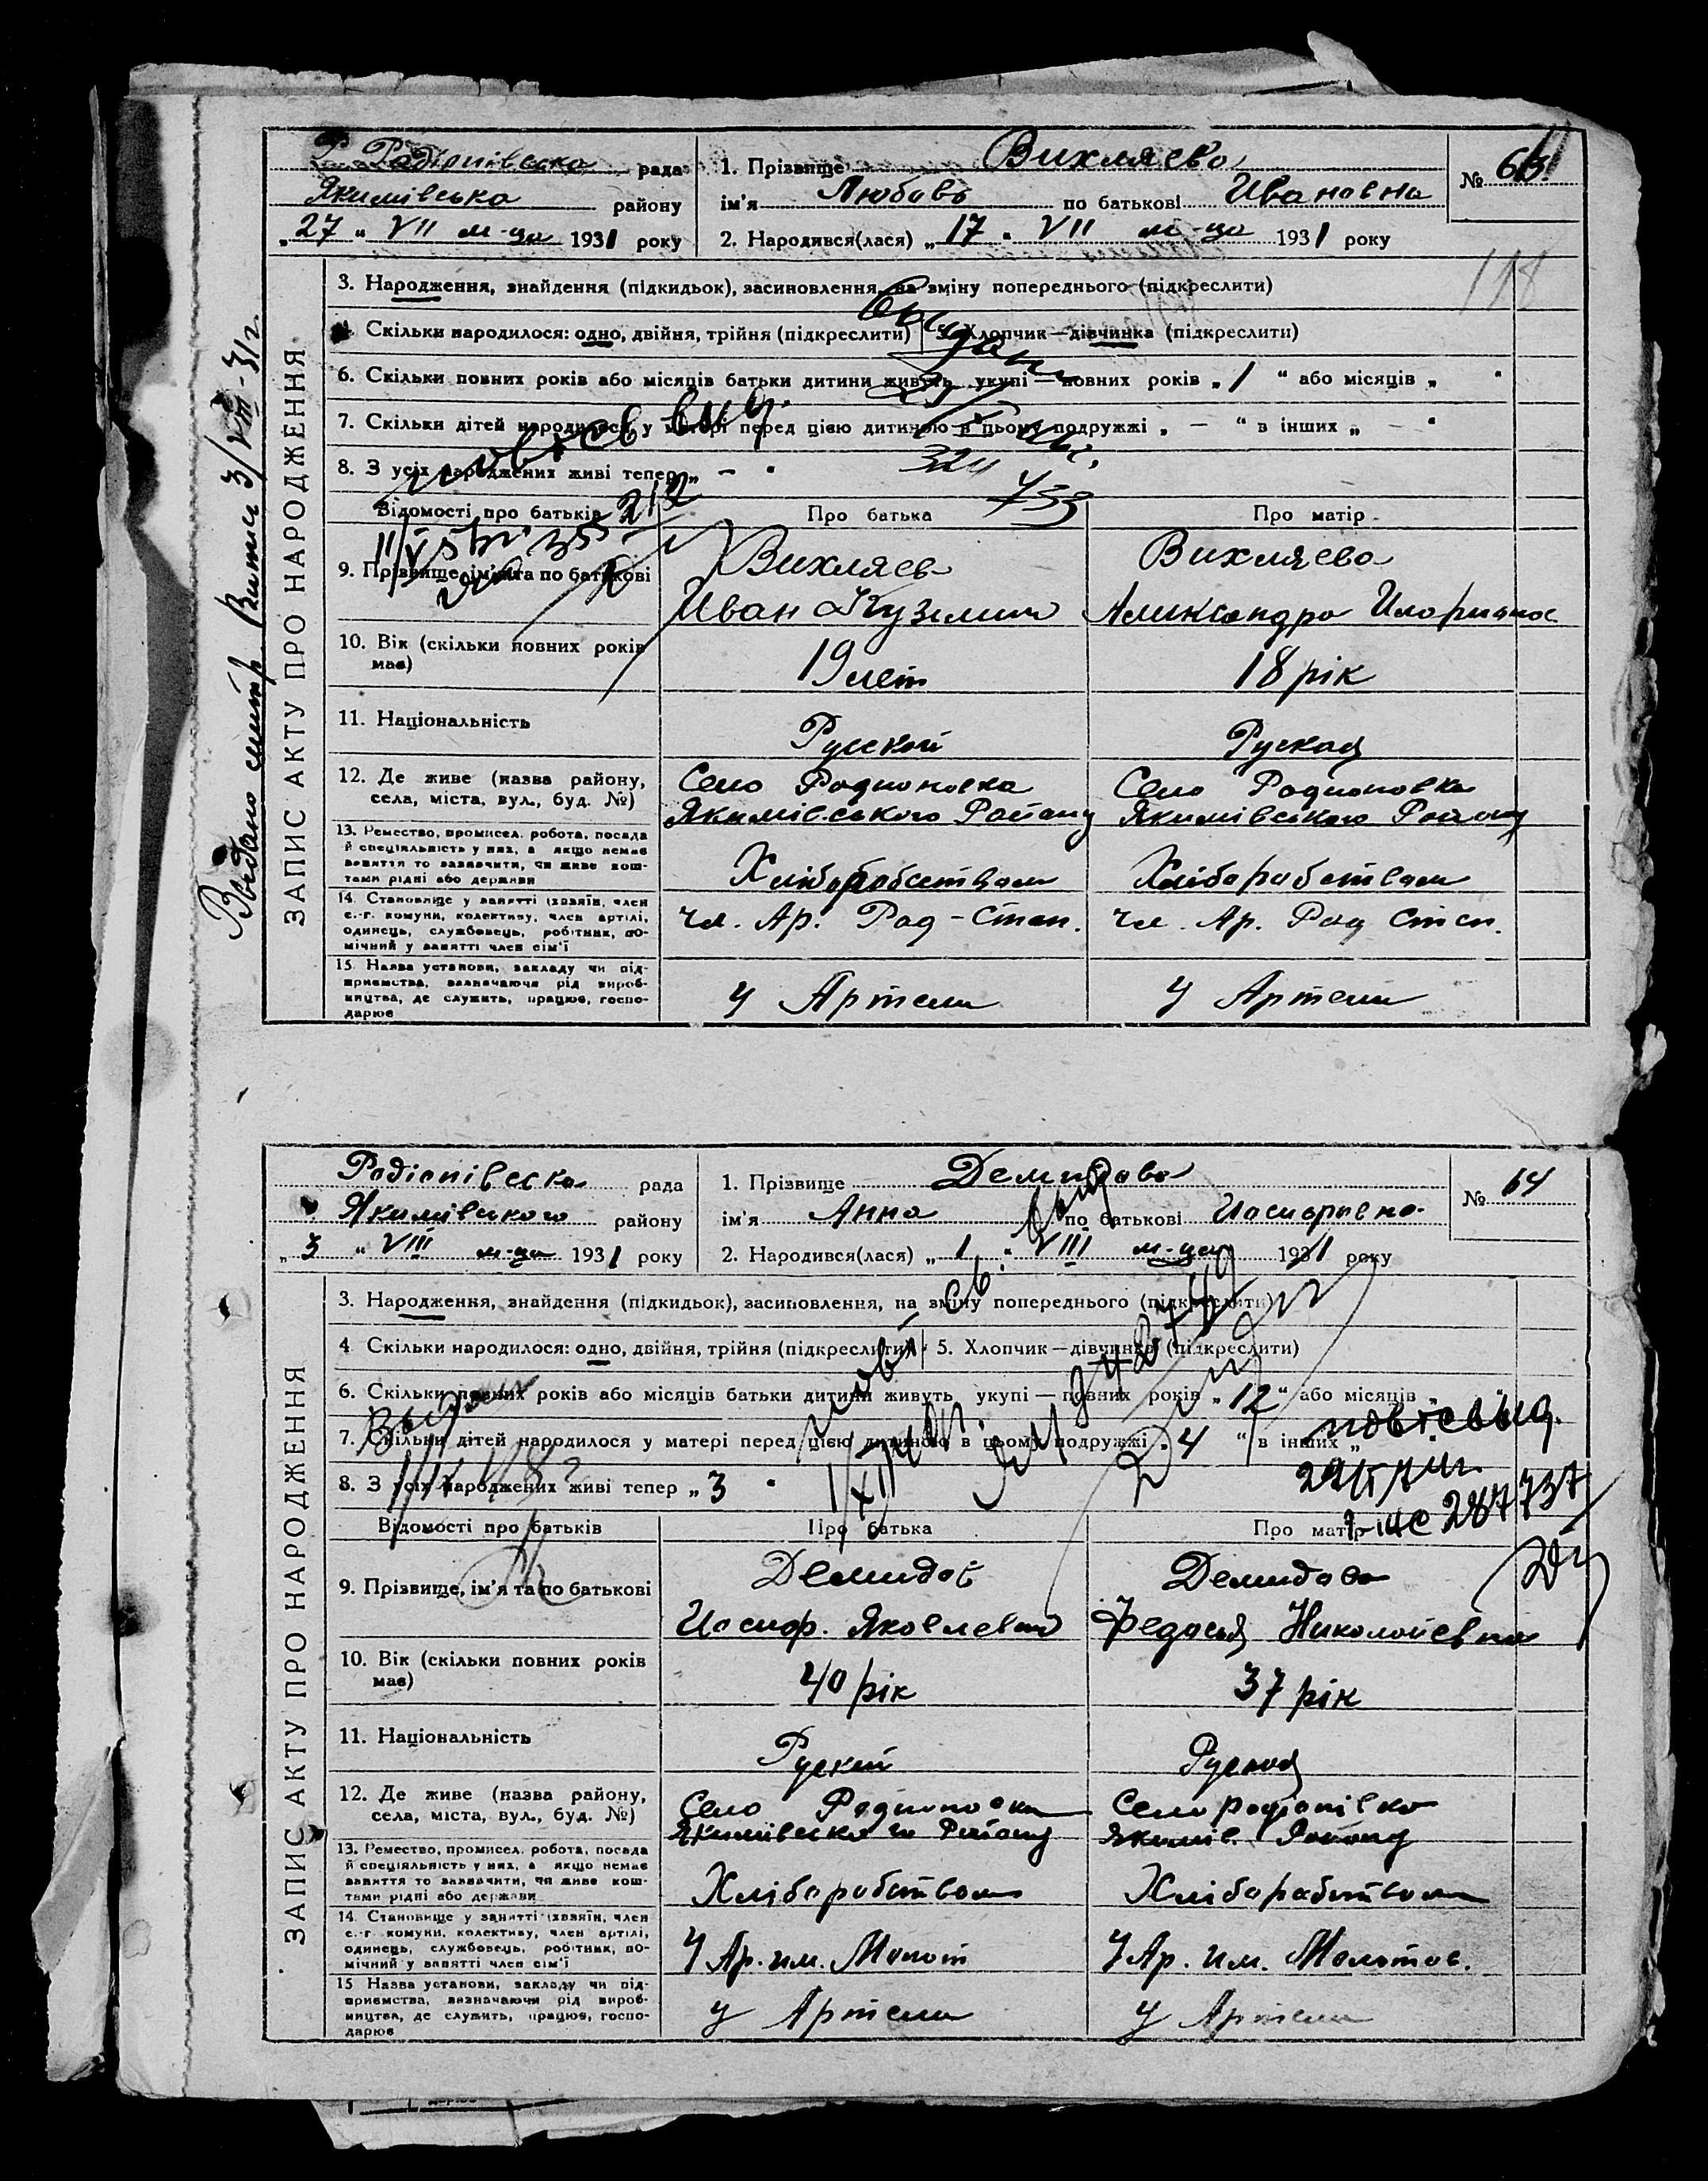 Родіонівська рада
Якимівська району
„27“ VII м-ця 1931 року
1. Прізвище Вихляева
ім'я Любовь по батькові Ивановна
2. Народився(лася) „17“ VII м-ця 1931 року
№ 63
118
ЗАПИС АКТУ ПРО НАРОДЖЕННЯ
3. Народження, знайдення (підкидьок), засиновлення, на зміну попереднього (підкреслити)
4. Скільки народилося: одно, двійня, трійня (підкреслити) 5. Хлопчик—дівчинка (підкреслити)
6. Скільки повних років або місяців батьки дитини живуть укупі—повних років „1“ або місяців „ “
7. Скільки дітей народилося у матері перед цією дитиною в цьому подружжі „ — “ в інших „ — “
8. З усіх народжених живі тепер „ — “
Відомості про батьків Про батька Про матір
9. Прізвище, ім'я та по батькові
Вихляев Вихляева
Иван Кузьмич Александра
10. Вік (скільки повних років має)
19 лет 18 рік
11. Національність
Русской Руская
12. Де живе (назва району, села, міста, вул., буд. №)
Село Родионовка Село Родионовка
Якимівського Району Якимівського Району
13. Ремество, промисел, робота, посада й спеціяльність у них, а якщо немає заняття то зазначити, чи живе коштами рідні або держави
Хліборобством Хлібаработвом
14. Становище у занятті (хазяїн, член с.-г. комуни, колективу, член артілі, одинець, службовець, робітник, помічний у занятті член сім'ї
Чл. Ар. Род-Степ. Чл. Ар. Род Степ.
15. Назва установи, закладу чи підприємства, визначаючи рід виробництва, де служить, працює, господарює
У Артели У Артели
Родіонівська рада
Якимівського району
„3“ VIII м-ця 1931 року
1. Прізвище Демидова
ім'я Анна по батькові Иосифовна
2. Народився(лася) „1“ VIII м-ця 1931 року
№ 64
ЗАПИС АКТУ ПРО НАРОДЖЕННЯ
3. Народження, знайдення (підкидьок), засиновлення, на зміну попереднього (підкреслити)
4 Скільки народилося: одно, двійня, трійня (підкреслити) 5. Хлопчик—дівчинка (підкреслити)
6. Скільки повних років або місяців батьки дитини живуть укупі—повних років „12“ або місяців
7. Скільки дітей народилося у матері перед цією дитиною в цьому подружжі „4“ в інших „
8. З усіх народжених живі тепер „3“
Відомості про батьків Про батька Про матір
9. Прізвище, ім'я та по батькові
Демидов Демидова
Иосиф. Яковлевич Федосья Николаевна
10. Вік (скільки повних років має)
40 рік 37 рік
11. Національність
Руский Руская
12. Де живе (назва району, села, міста, вул., буд. №)
Село Родионовка Село Родіонівка
Якимівского Району Якимів. Району
13. Ремество, промисел, робота, посада й спеціяльність у них, а якщо немає заняття то зазначити, чи живе коштами рідні або держави
Хлібаработвом Хлібаработвом
14. Становище у занятті (хазяїн, член с.-г. комуни, колективу, член артілі, одинець, службовець, робітник, помічний у занятті член сім'ї
У Ар. им. Молот У Ар. им. Молотов.
15 Назва установи, закладу чи підприємства, визначаючи рід виробництва, де служить, працює, господарює
У Артели У Артели